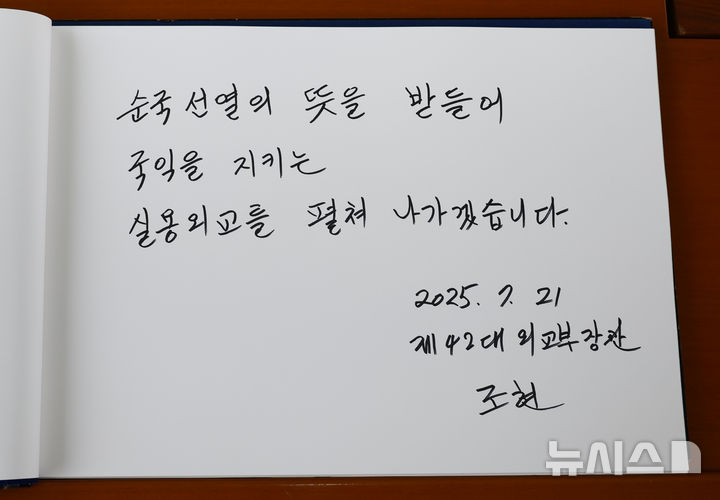 순국선열의 뜻을 받들어
국익을 지키는
실용외교를 펼쳐 나가겠습니다.
2025. 7. 21
제42대 외교부장관
조현
뉴시스